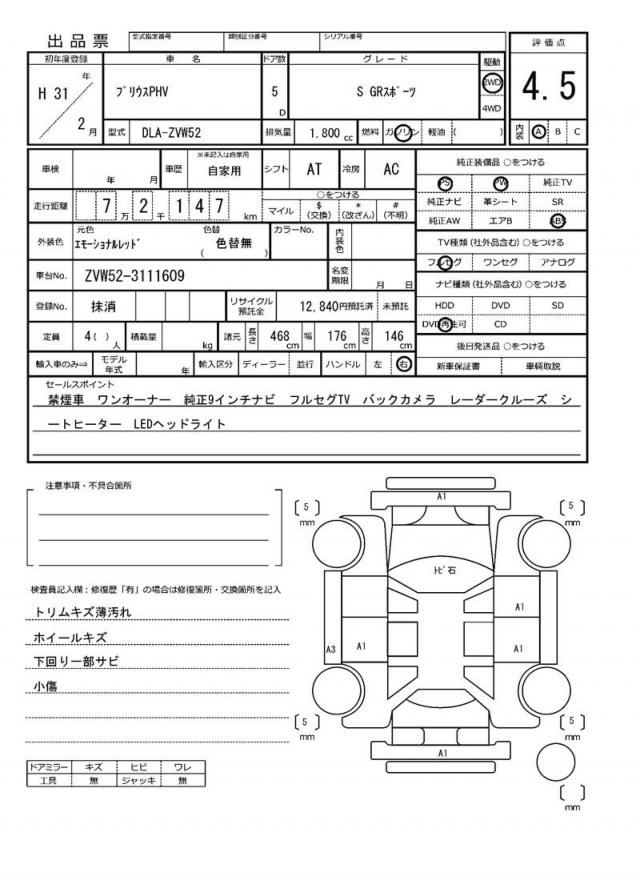 出品票
型式指定番号
類別区分番号
シリアル番号
評価点
初年度登録
車名
ドア数
グレード
駆動
H 31
年
2
月
プリウスPHV
5
D
S GRスポーツ
2WD
4WD
4.5
型式
DLA-ZVW52
排気量
1.800
cc
燃料
ガソリン
軽油
(　)
内装
A
B
C
車検
年
月
車歴
※未記入は自家用
自家用
シフト
AT
冷房
AC
純正装備品 ○をつける
PS
PW
純正TV
純正ナビ
革シート
SR
純正AW
エアB
ABS
走行距離
7
万
2
千
1 4 7
km
○をつける
マイル
$
(交換)
*
(改ざん)
#
(不明)
外装色
元色
エモーショナルレッド
色替
( 色替無 )
カラーNo.
内装色
TV種類 (社外品含む) ○をつける
フルセグ
ワンセグ
アナログ
車台No.
ZVW52-3111609
名変期限
月
日
ナビ種類 (社外品含む) ○をつける
HDD
DVD
SD
DVD再生可
CD
登録No.
抹消
リサイクル預託金
12,840円預託済
未預託
定員
4( )
人
積載量
kg
諸元
長さ
468
cm
幅
176
cm
高さ
146
cm
後日発送品 ○をつける
新車保証書
車輌取説
輸入車のみ⇒
モデル年式
年
輸入区分
ディーラー
並行
ハンドル
左
右
セールスポイント
禁煙車　ワンオーナー　純正9インチナビ　フルセグTV　バックカメラ　レーダークルーズ　シ
ートヒーター　LEDヘッドライト
注意事項・不具合箇所
検査員記入欄：修復歴「有」の場合は修復箇所・交換箇所を記入
トリムキズ薄汚れ
ホイールキズ
下回り一部サビ
小傷
ドアミラー
キズ
ヒビ
ワレ
工具
無
ジャッキ
無
A1
[ 5 ]
mm
[ 5 ]
mm
トビ石
A1
A3
A1
A1
[ 5 ]
mm
[ 5 ]
mm
A1
[　]
mm